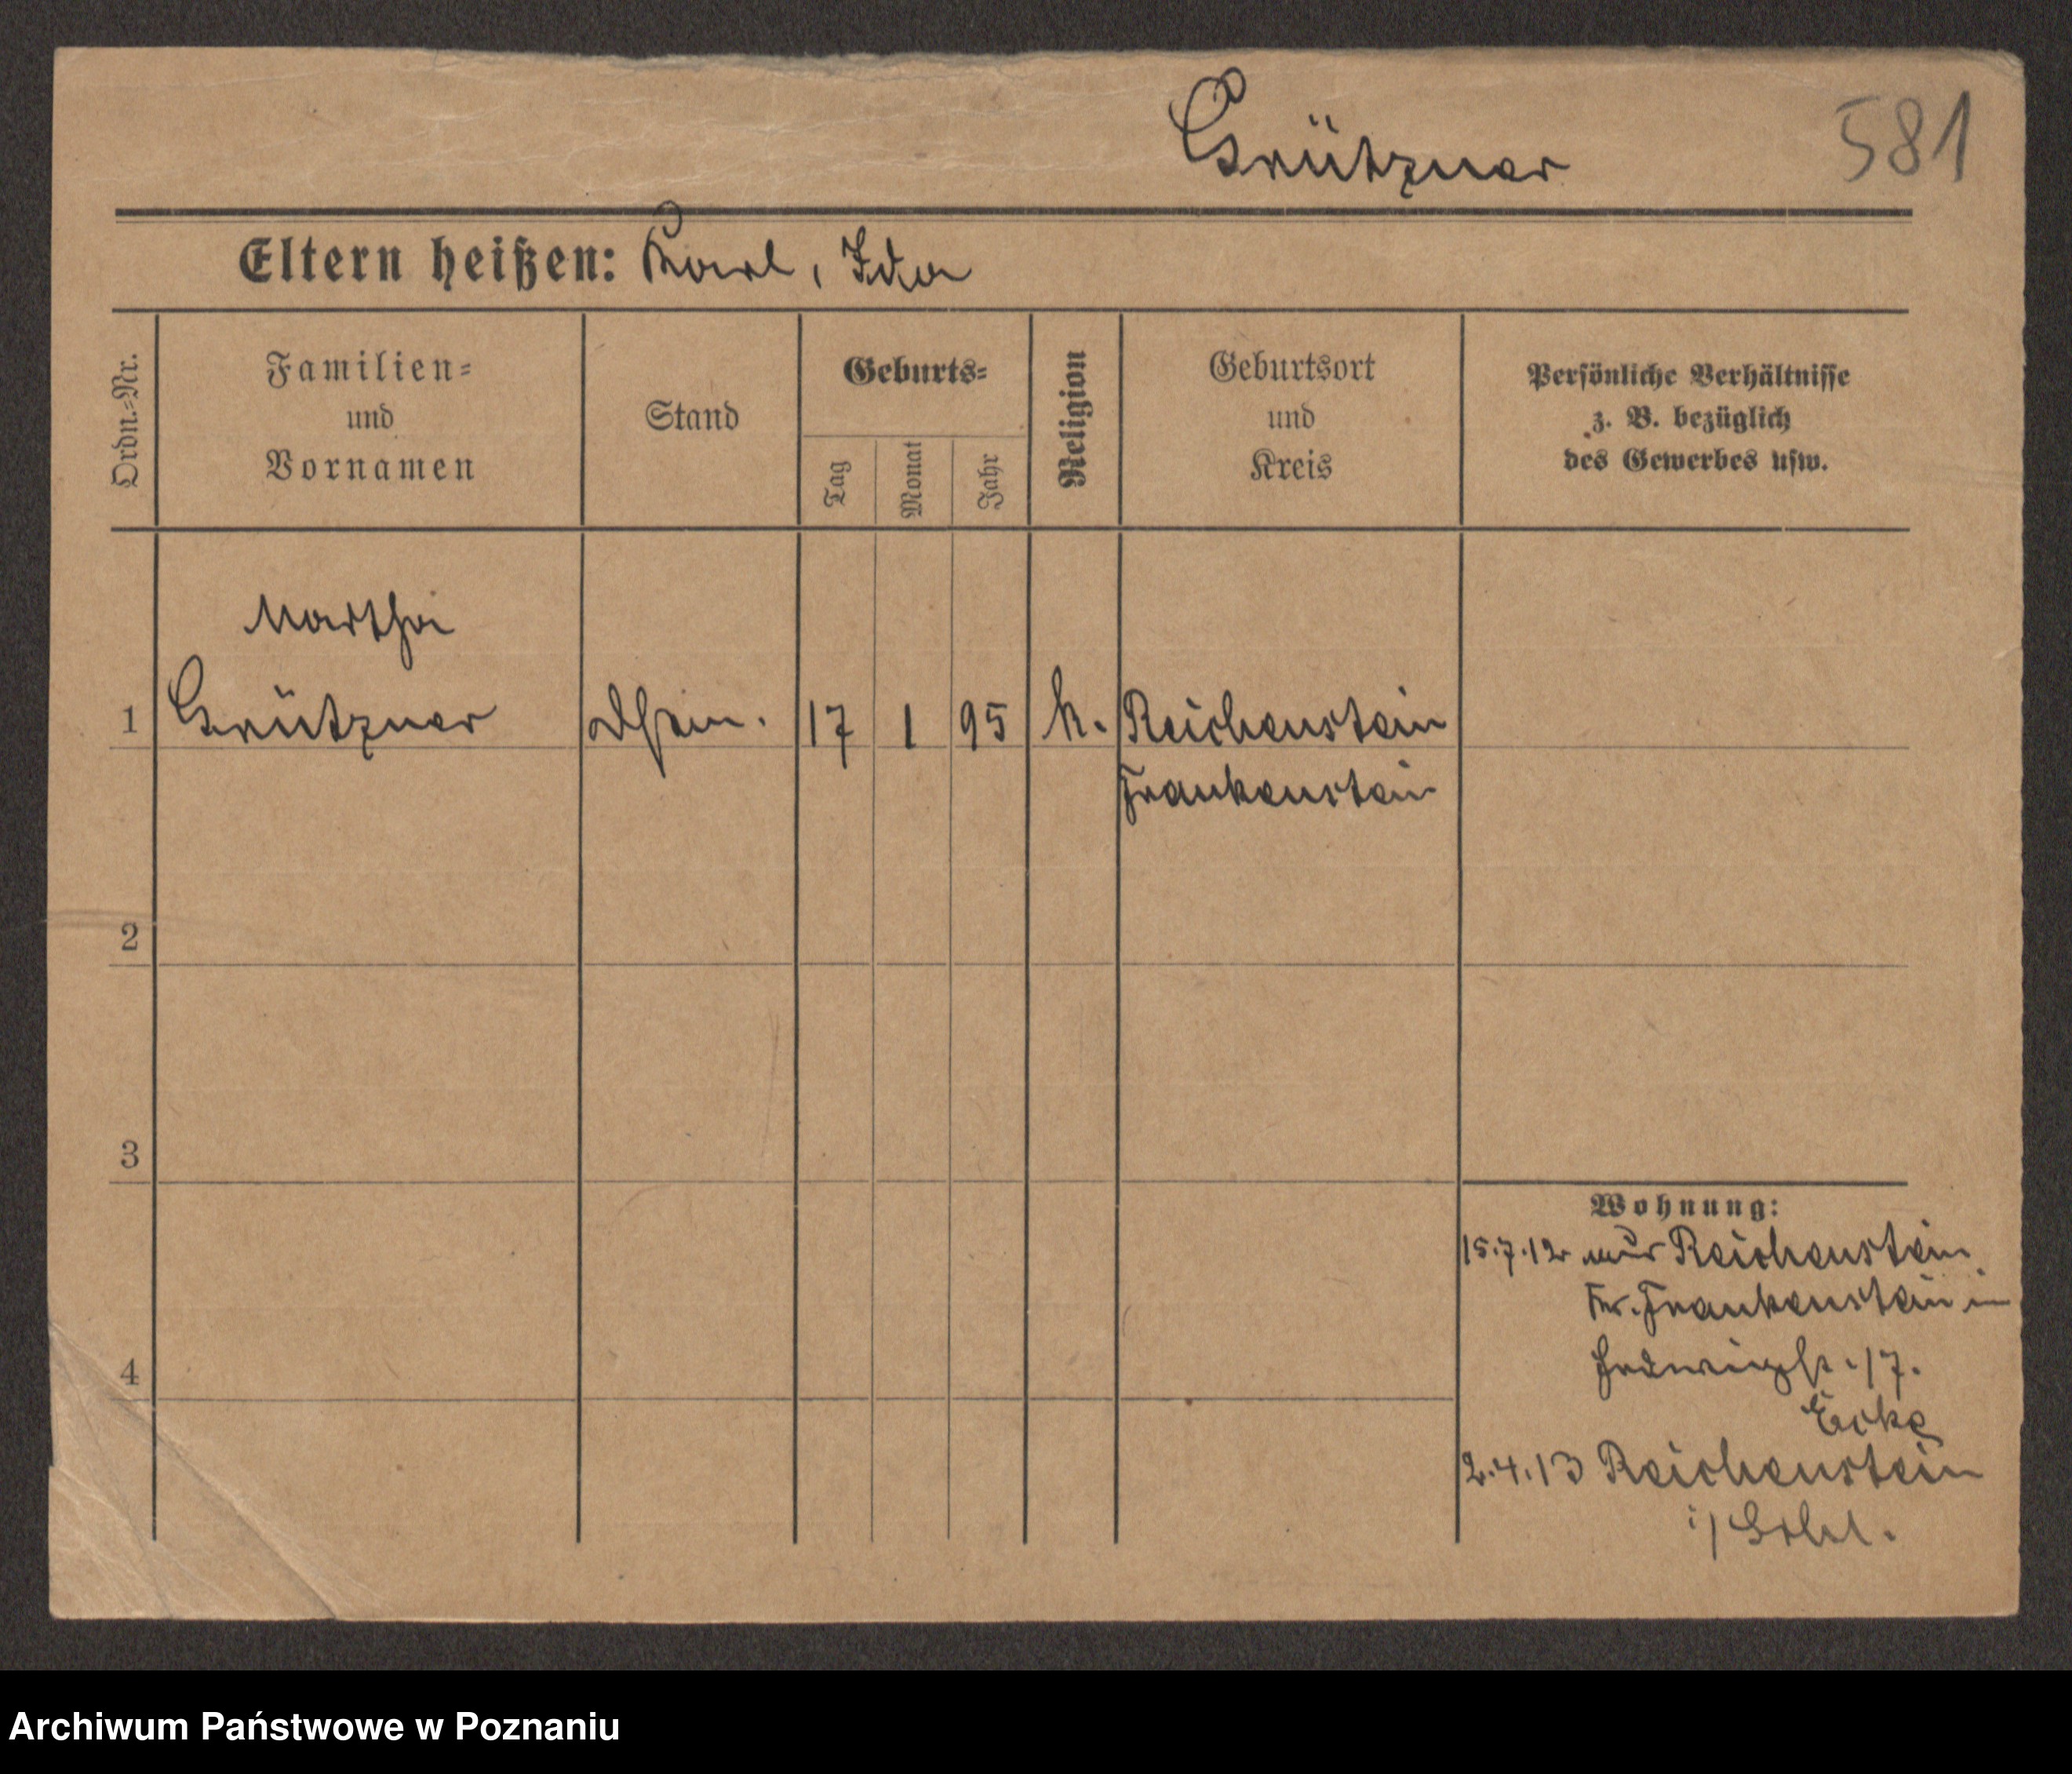 Grützner
581
Eltern heißen: Karl, Ida
Ordn.-Nr.
Familien-
und
Vornamen
Stand
Geburts-
Tag
Monat
Jahr
Religion
Geburtsort
und
Kreis
Persönliche Verhältnisse
z. B. bezüglich
des Gewerbes usw.
Martha
1 Grützner 17 1 95 k. Reichenstein
Frankenstein
2
3
4
Wohnung:
15.7.12 aus Reichenstein
Kr. Frankenstein in
Hedwigstr. 17.
Ecke
2.4.13 Reichenstein
i/ Schl.
Archiwum Państwowe w Poznaniu